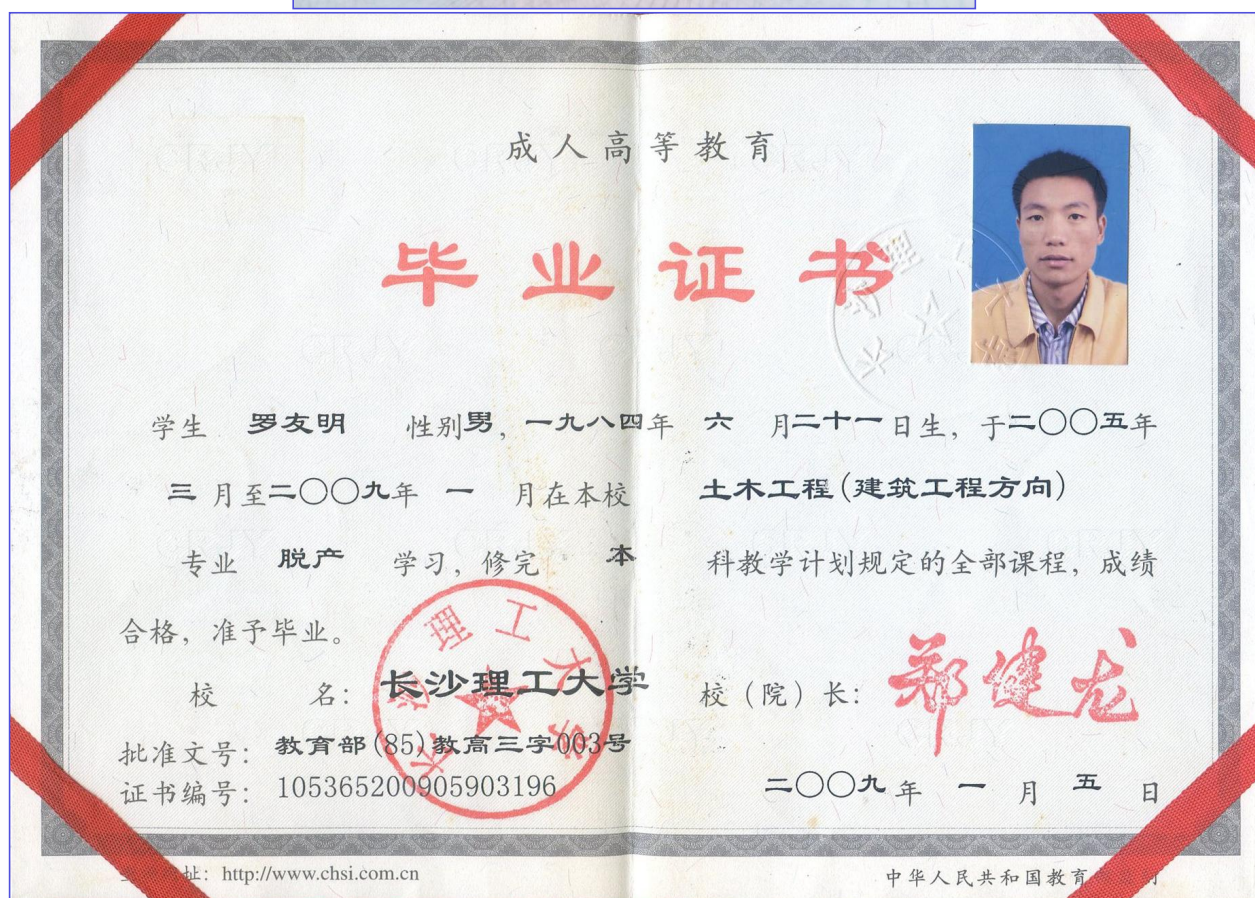 成人高等教育
毕业证书
学生 罗友明 性别男，一九八四年 六 月二十一日生，于二〇〇五年
三月至二〇〇九年 一 月在本校 土木工程(建筑工程方向)
专业 脱产 学习，修完 本 科教学计划规定的全部课程，成绩
合格，准予毕业。
校 名：长沙理工大学 校（院）长：郑健龙
长沙理工大学
批准文号：教育部(85)教高三字003号
证书编号：105365200905903196
二〇〇九年 一 月 五 日
址：http://www.chsi.com.cn
中华人民共和国教育